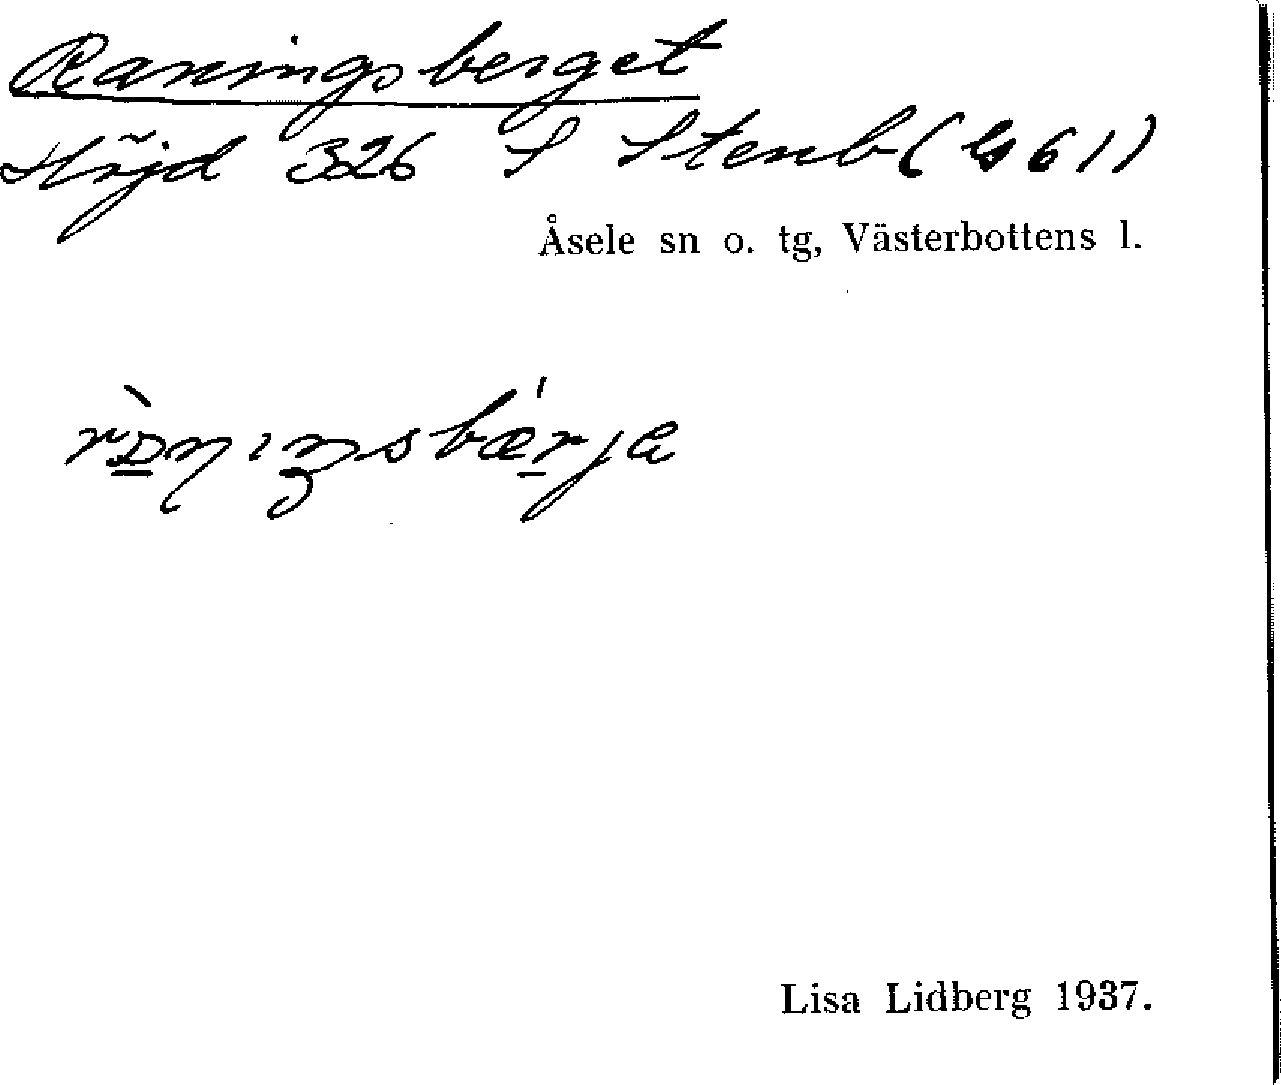 Raningsberget
Höjd 326 S Stenb (Gs 61)
Åsele sn o. tg, Västerbottens l.
Lisa Lidberg 1937.